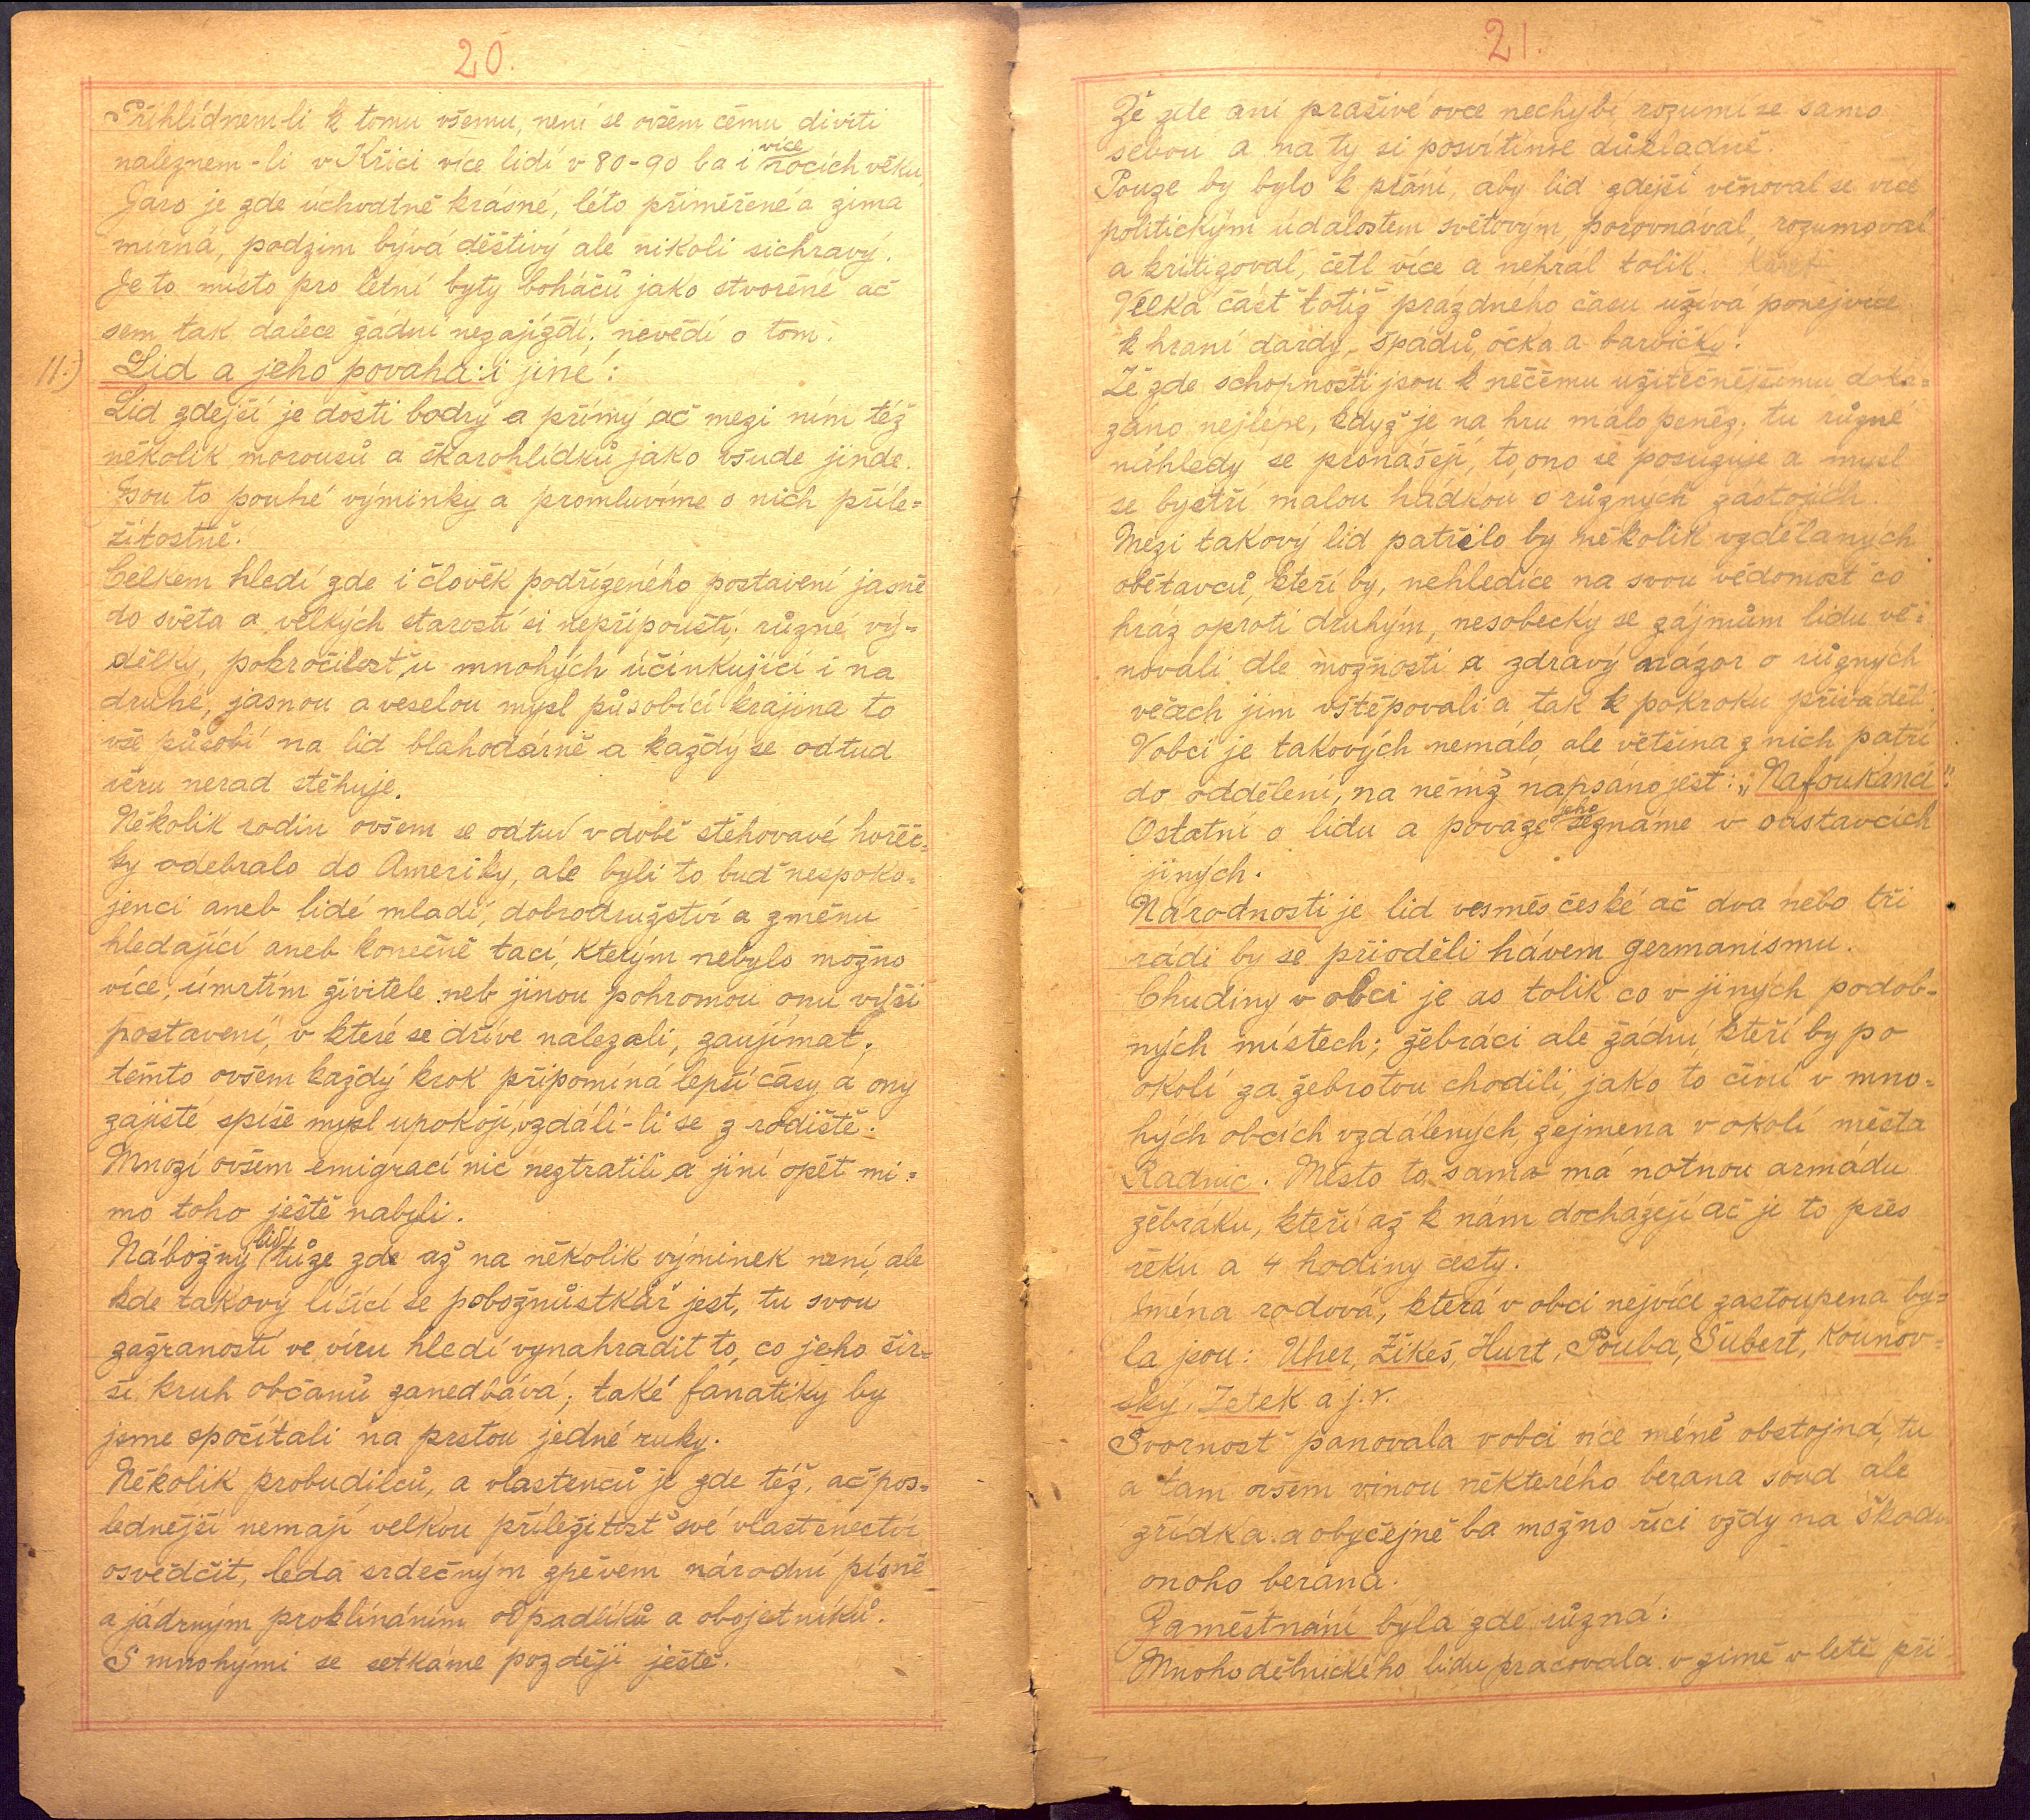 20.
Přihlídnem li k tomu všemu, není se ovšem čemu diviti
naleznem-li v Křici více lidí v 80-90 ba i více rocích věku,
Jaro je zde úchvatně krásné, léto přiměřené a zima
mírná, podzim bývá deštivý ale nikoli sichravý.
Je to místo pro letní byty boháčů jako stvořené ač
sem tak dalece žádní nezajíždí; nevědí o tom.
11.) Lid a jeho povaha: i jiné:
Lid zdejší je dosti bodrý a přímý ač mezi ním též
několik morousů a škarohlídků jako všude jinde.
Jsou to pouhé výminky a promluvíme o nich příle=
žitostně.
Celkem hledí zde i člověk podřízeného postavení jasně
do světa a velkých starostí si nepřipouští; různé vý=
dělky, pokročilost u mnohých účinkující i na
druhé, jasnou a veselou mysl působící krajina to
vše působí na lid blahodárně a každý se odtud
věru nerad stěhuje.
Několik rodin ovšem se odtud v době stěhovavé horeč=
ky odebralo do Ameriky, ale byli to buď nespoko=
jenci aneb lidé mladí, dobrodružství a změnu
hledající aneb konečně tací, kterým nebylo možno
více, úmrtím živitele neb jinou pohromou onu vyšší
postavení, v které se dříve nalezali, zaujímat;
těmto ovšem každý krok připomíná lepší časy a ony
zajisté spíše mysl upokojí, vzdálí-li se z rodiště.
Mnozí ovšem emigrací nic neztratili a jiní opět mi=
mo toho ještě nabyli.
Nábožný lid tůze zde až na několik výminek není, ale
kde takový lišící se pobožnůstkář jest, tu svou
zažraností ve víru hledí vynahradit to, co jeho šir=
ší kruh občanů zanedbává; také fanatiky by
jsme spočítali na prstou jedné ruky.
Několik probudilců, a vlastenců je zde též, ač pos=
lednější nemají velkou příležitost své vlastenectví
osvědčit, leda srdečným zpěvem národní písně
a jádrným proklínáním odpadlíků a obojetníků.
S mnohými se setkáme později ještě.
21.
Že zde ani prašivé ovce nechybí rozumí se samo
sebou a na ty si posvítíme důkladně.
Pouze by bylo k přání, aby lid zdejší věnoval se více
politickým událostem světovým, porovnával, rozumoval
a kritizoval, četl více a nehrál tolik.
Velká část totiž prázdného času užívá ponejvíce
k hraní dardy, špádů, očka a barvičky.
Že zde schopnosti jsou k něčemu užitečnějšímu doká=
záno nejlépe, když je na hru málo peněz; tu různé
náhledy se pronášejí, to, ono se posuzuje a mysl
se bystří malou hádkou o různých zástojích.
Mezi takový lid patřilo by několik vzdělaných
obětavců, kteří by, nehledíce na svou vědomost co
hráz oproti druhým, nesobecky se zájmům lidu vě=
novali dle možnosti a zdravý názor o různých
věcech jim vštěpovali a tak k pokroku přiváděli.
V obci je takových nemálo ale většina z nich patří
do oddělení, na němž napsáno jest: „Nafoukanci“.
Ostatní o lidu a povaze jeho seznáme v odstavcích
jiných.
Národnosti je lid vesměs české ač dva nebo tři
rádi by se přioděli hávem germanismu.
Chudiny v obci je as tolik co v jiných podob=
ných místech; žebráci ale žádní, kteří by po
okolí za žebrotou chodili, jako to činí v mno=
hých obcích vzdálených, zejmena v okolí města
Radnic. Město to samo má notnou armádu
žebráku, kteří až k nám docházejí ač je to přes
řeku a 4 hodiny cesty.
Jména rodová, která v obci nejvíce zastoupena by=
la jsou: Uher, Žikeš, Hurt, Pouba, Šubert, Kounov=
ský, Jetek a j. v.
Svornost panovala v obci více méně obstojná, tu
a tam ovšem vinou některého berana soud ale
zřídka a obyčejně ba možno říci vždy na škodu
onoho berana.
Zaměstnání byla zde různá:
Mnoho dělnického lidu pracovala v zimě v letě při